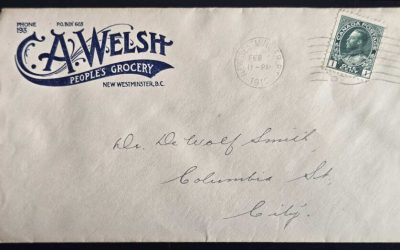 PHONE 193
P.O. BOX 603
C.A. WELSH
PEOPLE'S GROCERY
NEW WESTMINSTER, B.C.
FEB
CANADA POSTAGE
1 1
Dr. De Wolf Smith,
Columbia St.
City.